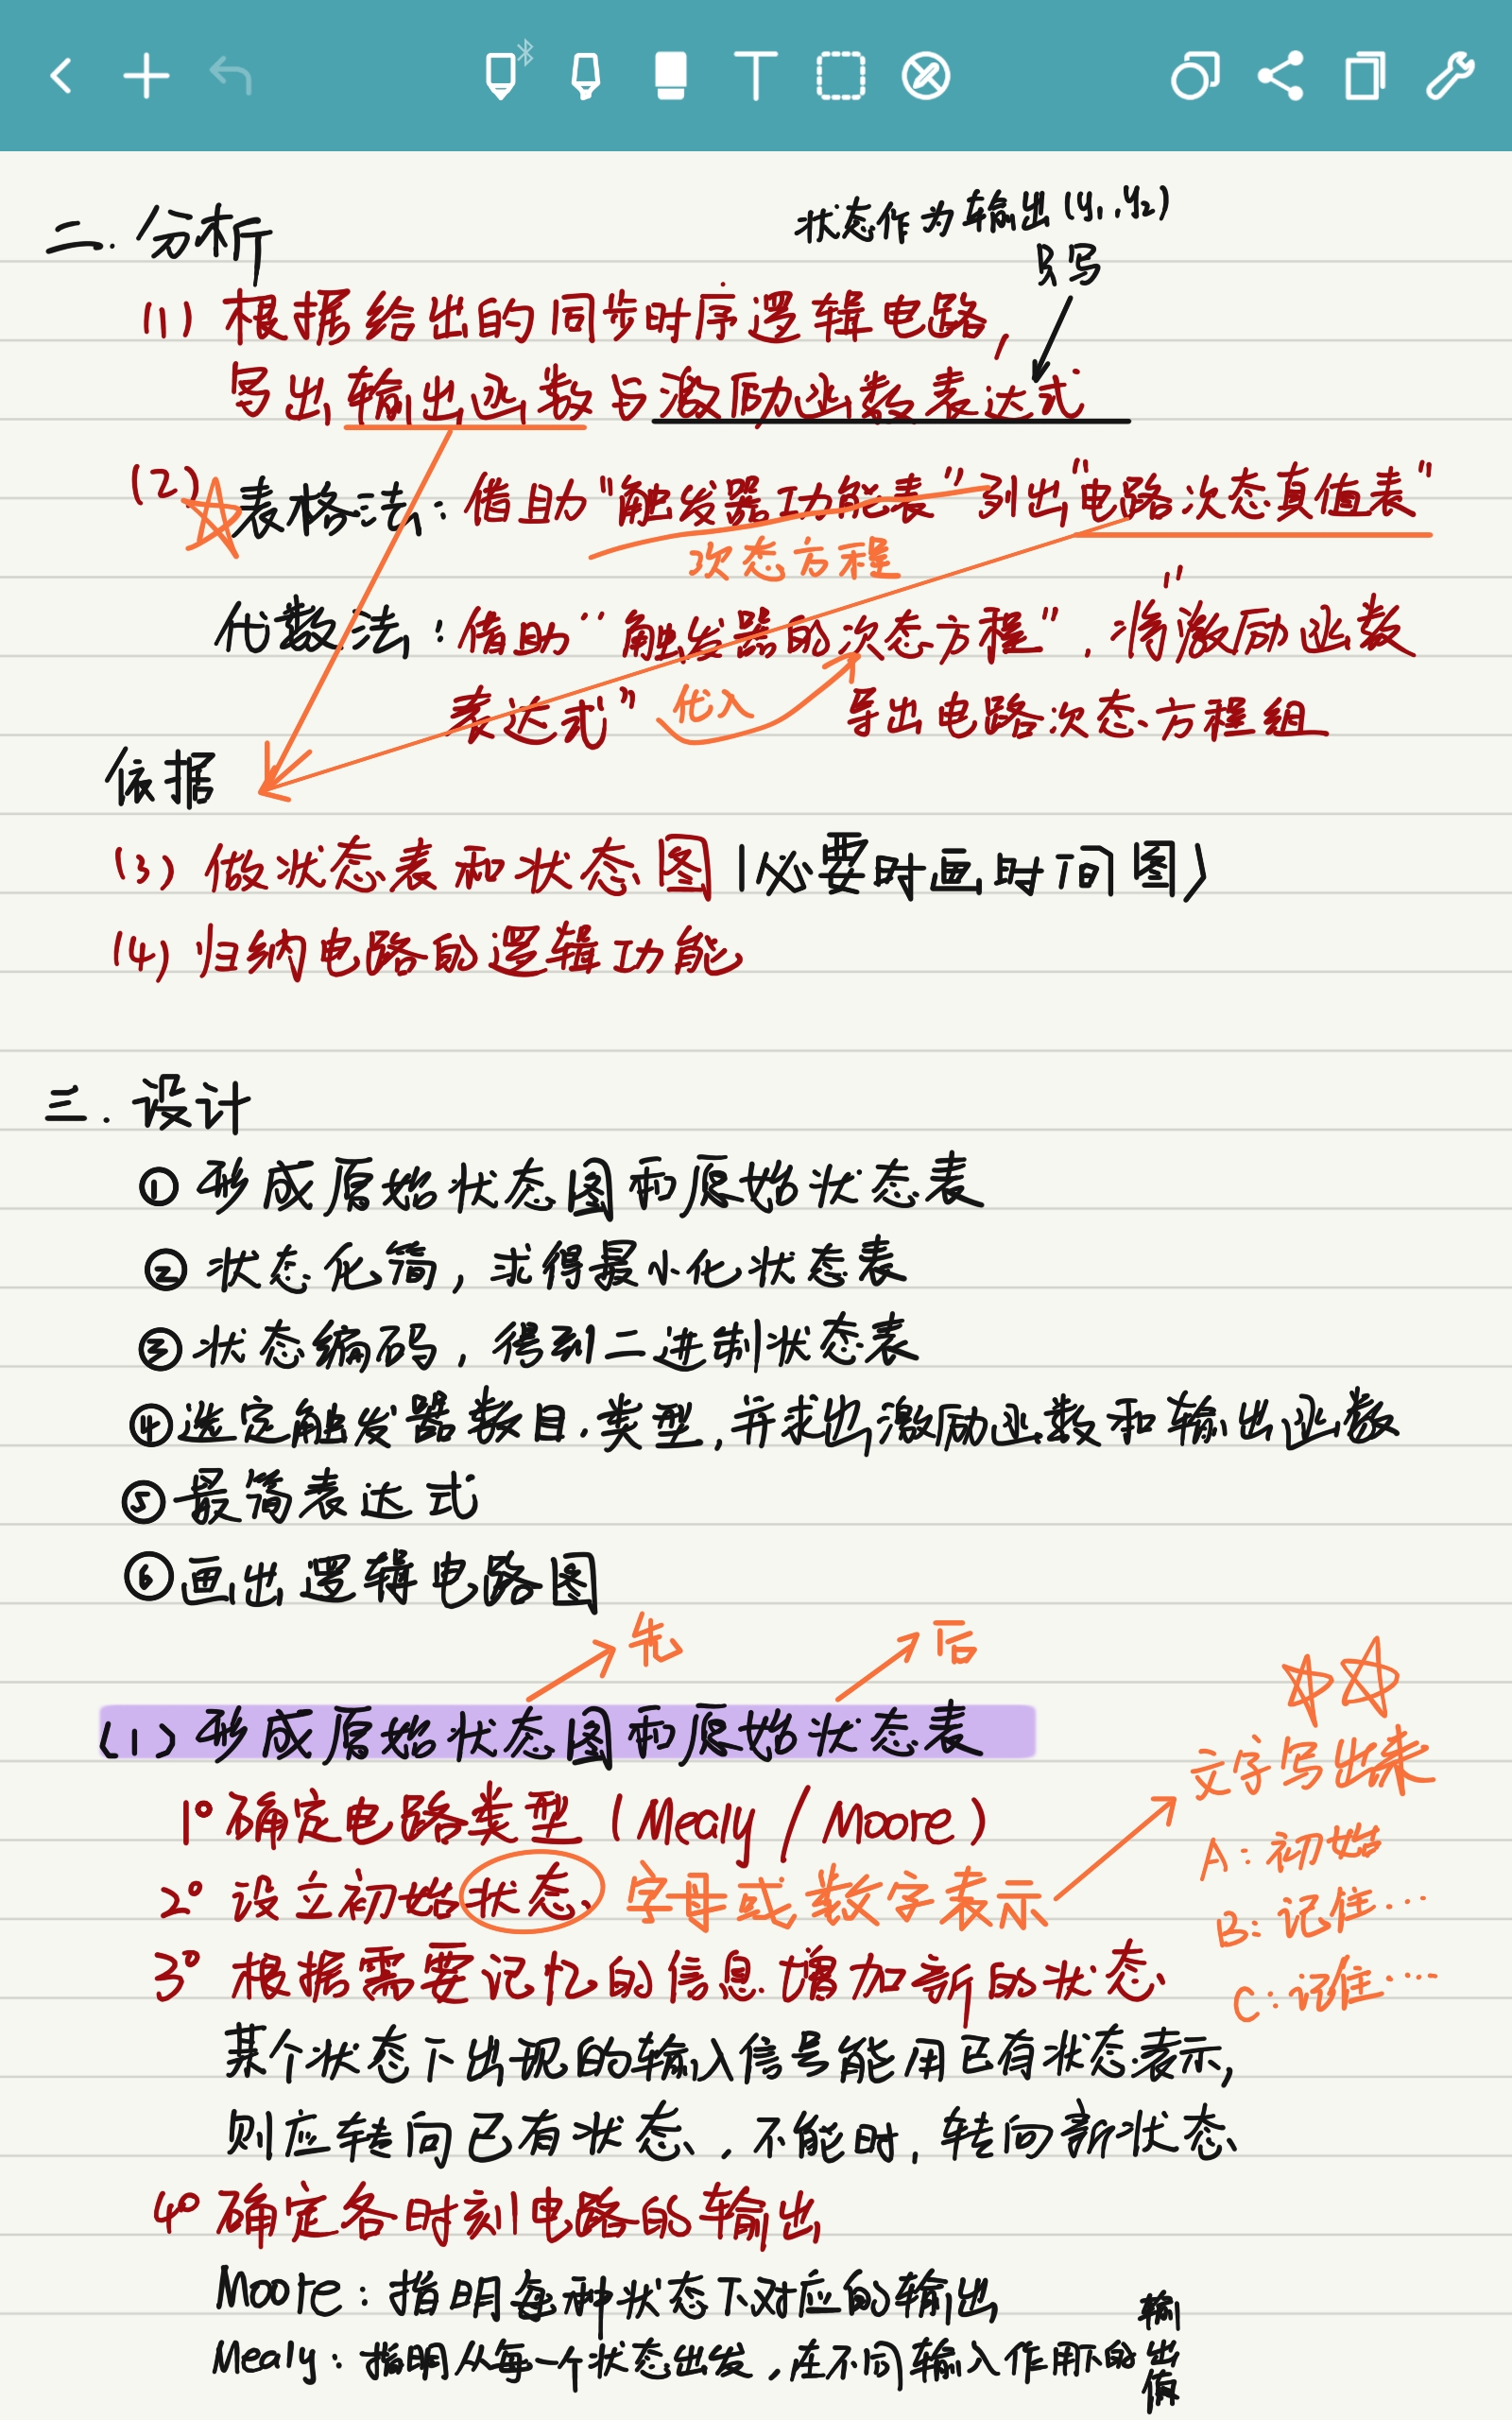 状态作为输出(y₁,y₂)
只写
二.分析
(1) 根据给出的同步时序逻辑电路,
写出输出函数与激励函数表达式
(2) 表格法:借助"触发器功能表"列出"电路次态真值表"
次态方程
代数法:借助"触发器的次态方程",将"激励函数
表达式" 代入 导出电路次态方程组
依据
(3) 做状态表和状态图(必要时画时间图)
(4) 归纳电路的逻辑功能
三.设计
① 形成原始状态图和原始状态表
② 状态化简,求得最小化状态表
③ 状态编码,得到二进制状态表
④ 选定触发器数目.类型,并求出激励函数和输出函数
⑤ 最简表达式
⑥ 画出逻辑电路图
先 后
(1) 形成原始状态图和原始状态表
1° 确定电路类型(Mealy/Moore)
2° 设立初始状态 字母或数字表示
文字写出来
A:初始
B:记住···
C:记住····
3° 根据需要记忆的信息增加新的状态
某个状态下出现的输入信号能用已有状态表示,
则应转向已有状态,不能时,转向新状态
4° 确定各时刻电路的输出
Moore:指明每种状态下对应的输出
Mealy:指明从每一个状态出发,在不同输入作用下的输出值